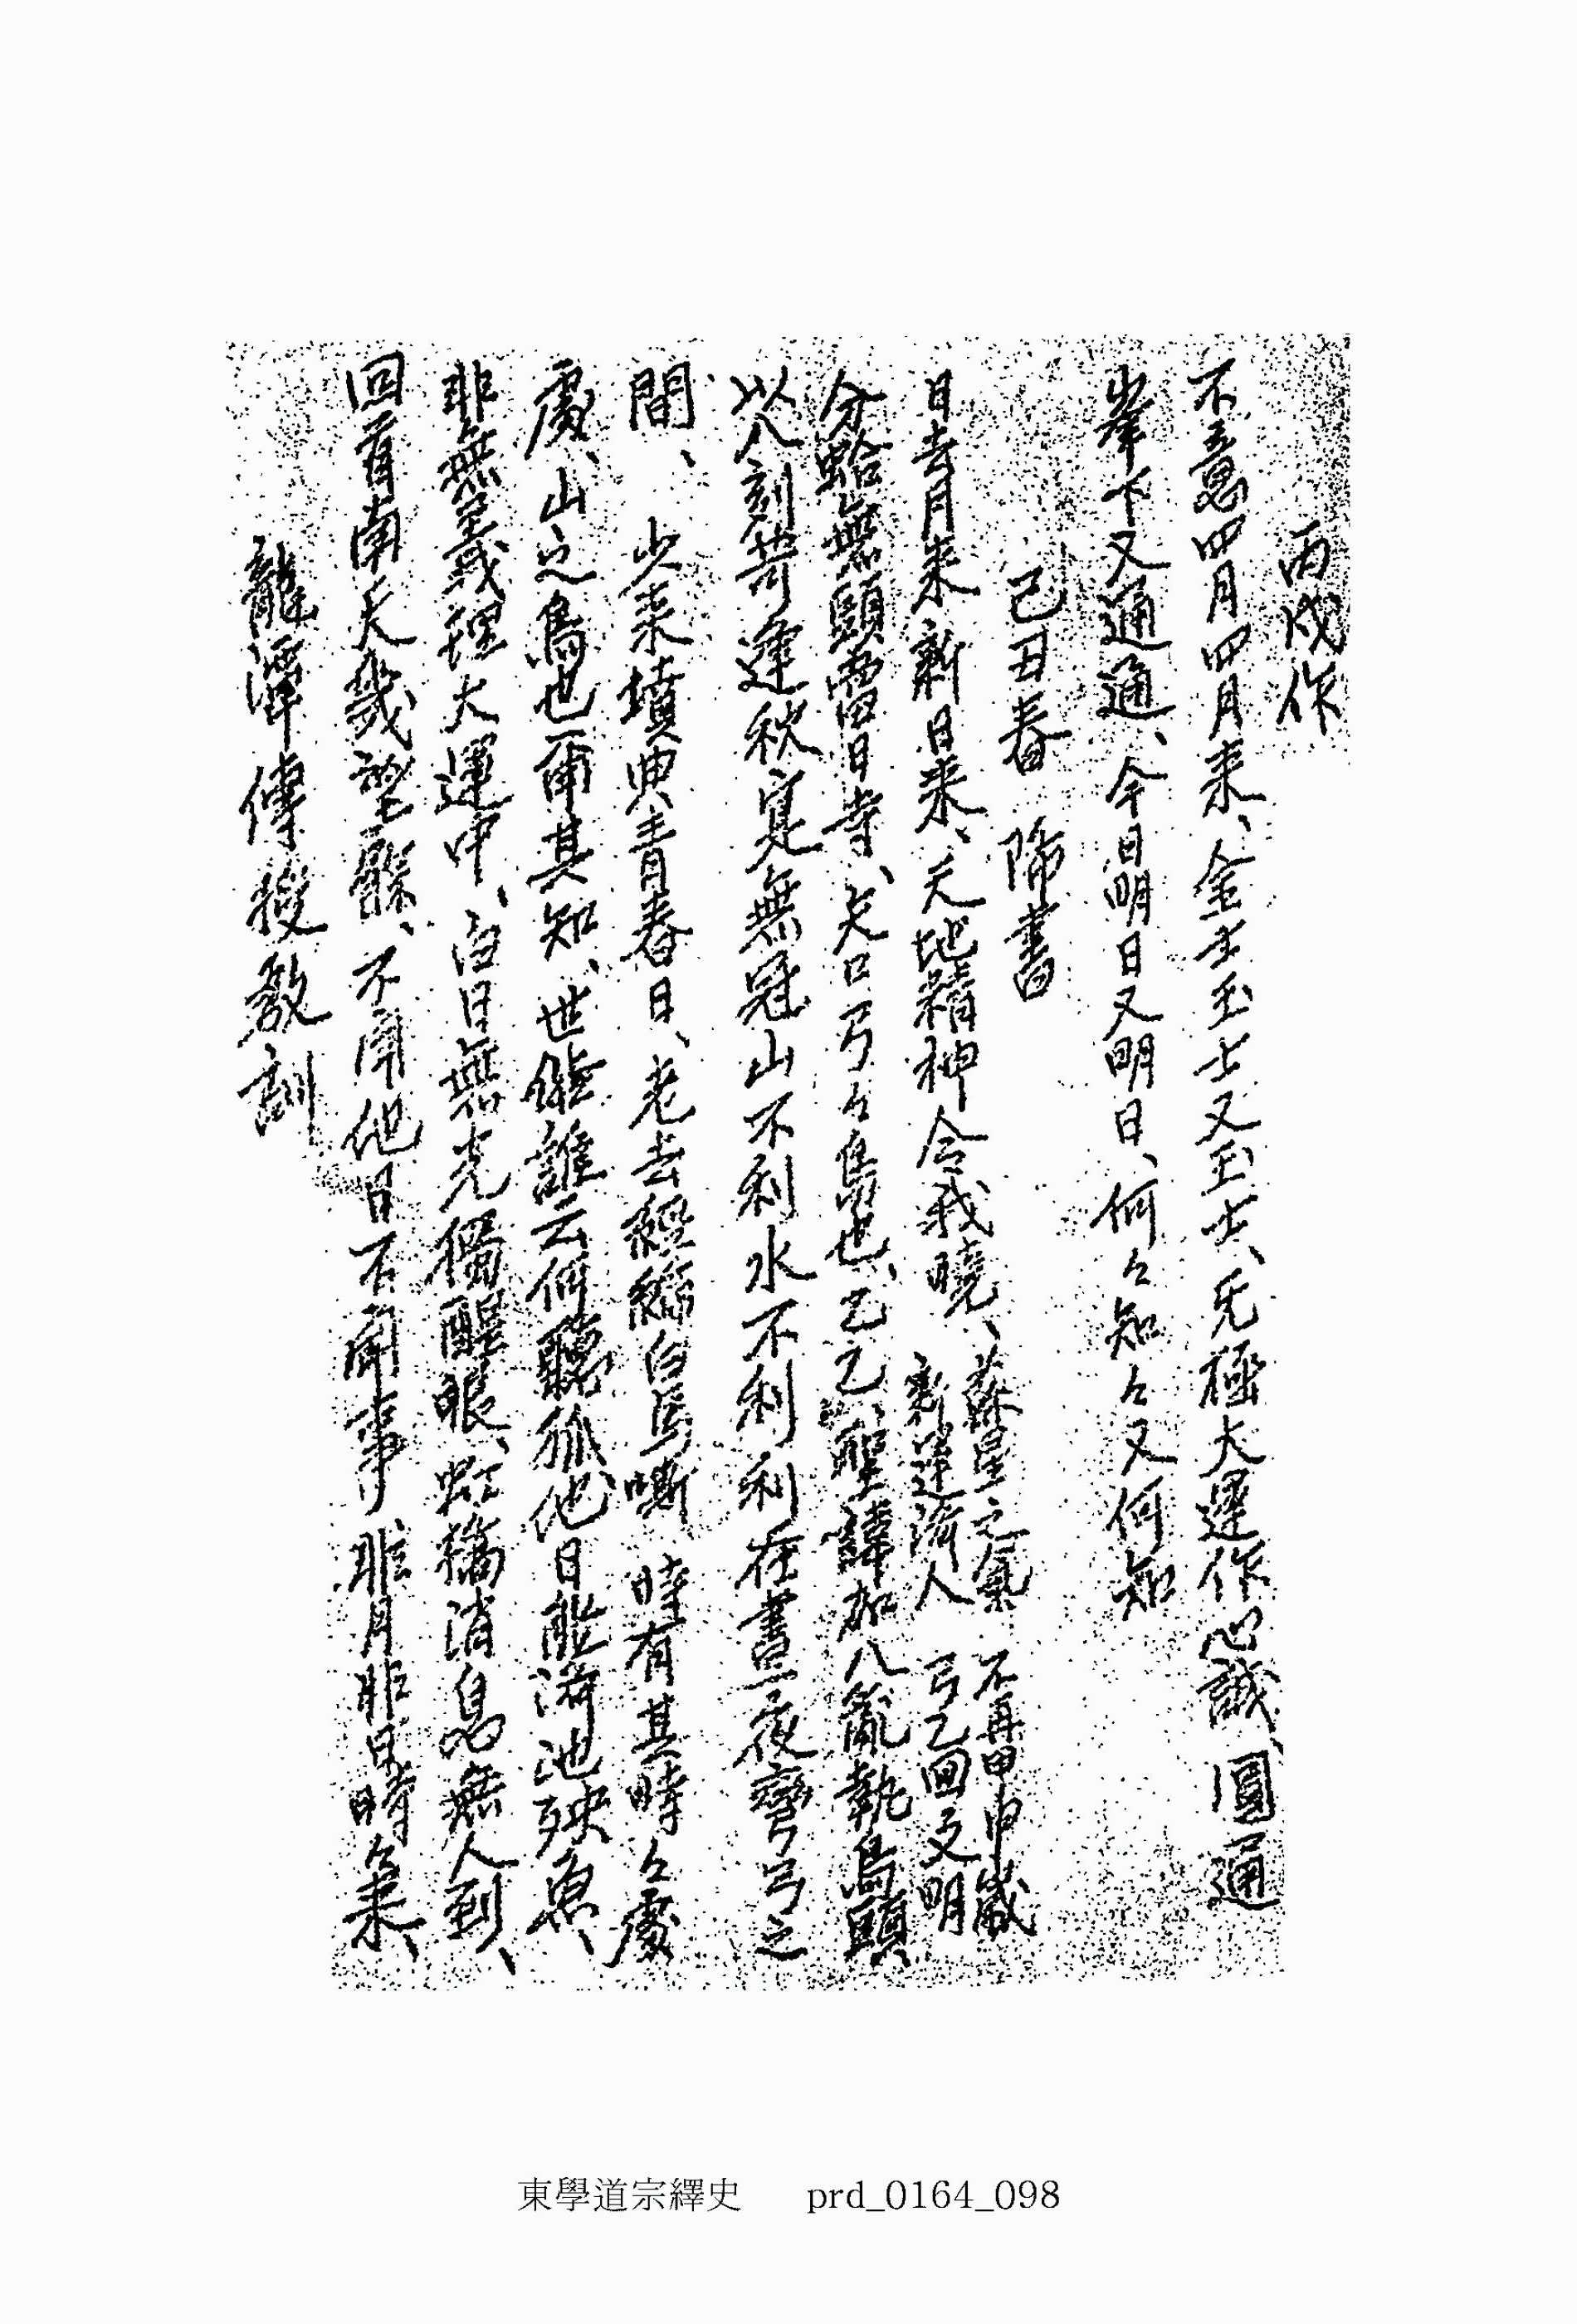 丙戌作
不意四月四月来、金士玉士又玉士、无極大運作心誠、圓通
峯下又通通、今日明日又明日、何々知々又何知
己丑春 降書
日去月来新日来、天地精神令我曉、蘇星之氣 不再甲申歲
新運濟人 弓乙回文明
分蛤無頭當日寺、矢口弓々鳥也、乙乙聖諱加八亂執鳥頭
以人刻苛逢秋寔無冠山不利水不利利在晝夜彎弓之
間、 少来墳典青春日、老去經綸白馬嘶 時有其時々處
處、山之鳥也爾其知、世儺誰云何聽孤他日能濟池殃魚、
非無義理大運中、白日無光獨醒眼、虹橋消息無人到、
回首南天幾望縣、不聞他日不聞事 非月非日時々来、
龍潭傳授敎訓
東學道宗繹史 prd_0164_098